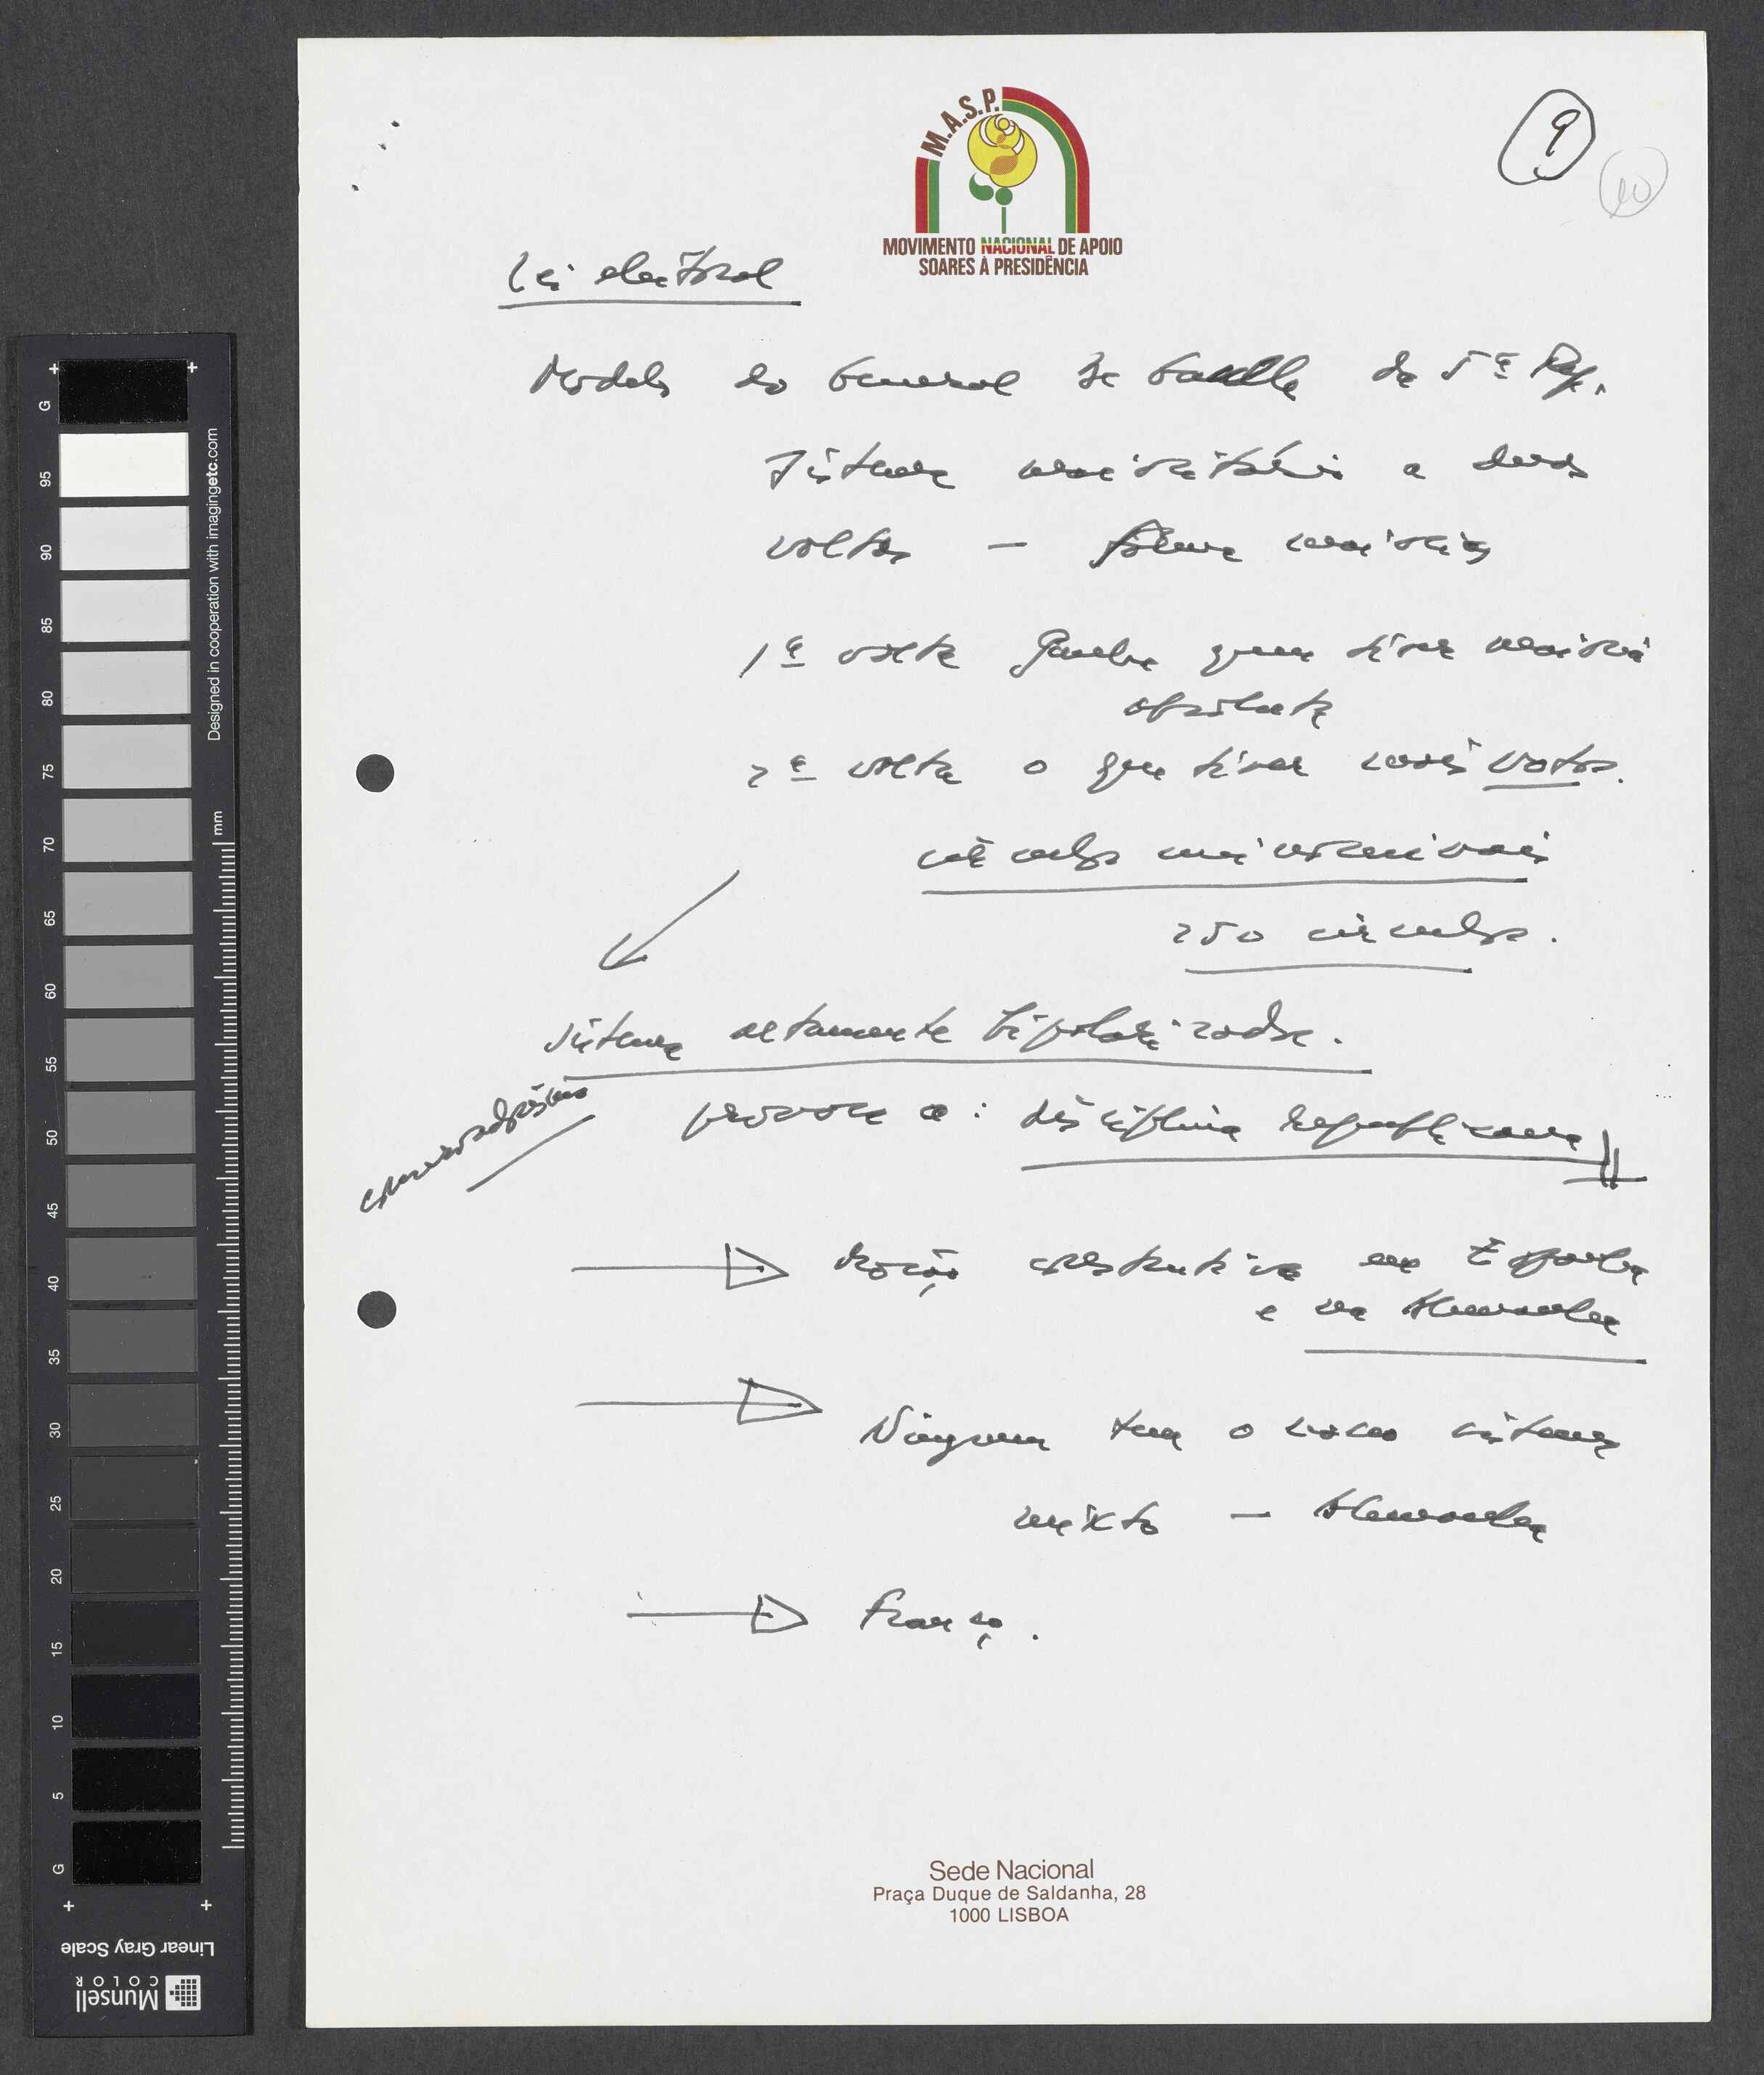 M.A.S.P.
MOVIMENTO NACIONAL DE APOIO
SOARES À PRESIDÊNCIA
9
10
Lei eleitoral
Modelo do General De Gaulle da 5ª Rep.
Sistema maioritário a duas
voltas — forma maiorias
1ª volta Ganha quem tiver maioria
absoluta
2ª volta o que tiver mais votos.
círculos uninominais
250 círculos.
sistema altamente bipolarizador.
provoca a: disciplina republicana
Moção construtiva em Espanha
e na Alemanha
Ninguem tem o nosso sistema
mixto — Alemanha
França.
Sede Nacional
Praça Duque de Saldanha, 28
1000 LISBOA
G
95
90
85
80
75
70
65
60
55
50
45
40
35
30
25
20
15
10
5
G
Designed in cooperation with imagingetc.com
mm
Linear Gray Scale
Munsell
COLOR